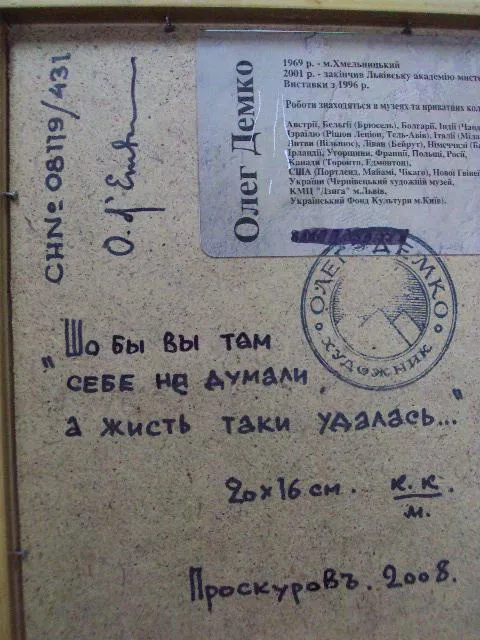 CHNo 08119/431
O. d'Emko
Олег Демко
1969 р. - м.Хмельницький
2001 р. - закінчив Львівську академію мисте
Виставки з 1996 р.
Роботи знаходяться в музеях та приватних кол
Австрії, Бельгії (Брюсель), Болгарії, Індії (Чанд
Ізраїлю (Рішон Лепіон, Тель-Авів), Італії (Міла
Литви (Вільнюс), Ліван (Бейрут), Німеччині (Ба
Ірландії, Угорщини, Франції, Польщі, Росії,
Канади (Торонто, Едмонтон),
США (Портленд, Майамі, Чікаго), Нової Гвінеї
України (Чернівецький художній музей,
КМЦ "Дзига" м.Львів,
Український Фонд Культури м.Київ).
ОЛЕГ ДЕМКО
ХУДОЖНИК
"Шо бы вы там
себе не думали,
а жисть таки удалась..."
20х16 см. к.к.
м.
Проскуровъ. 2008.